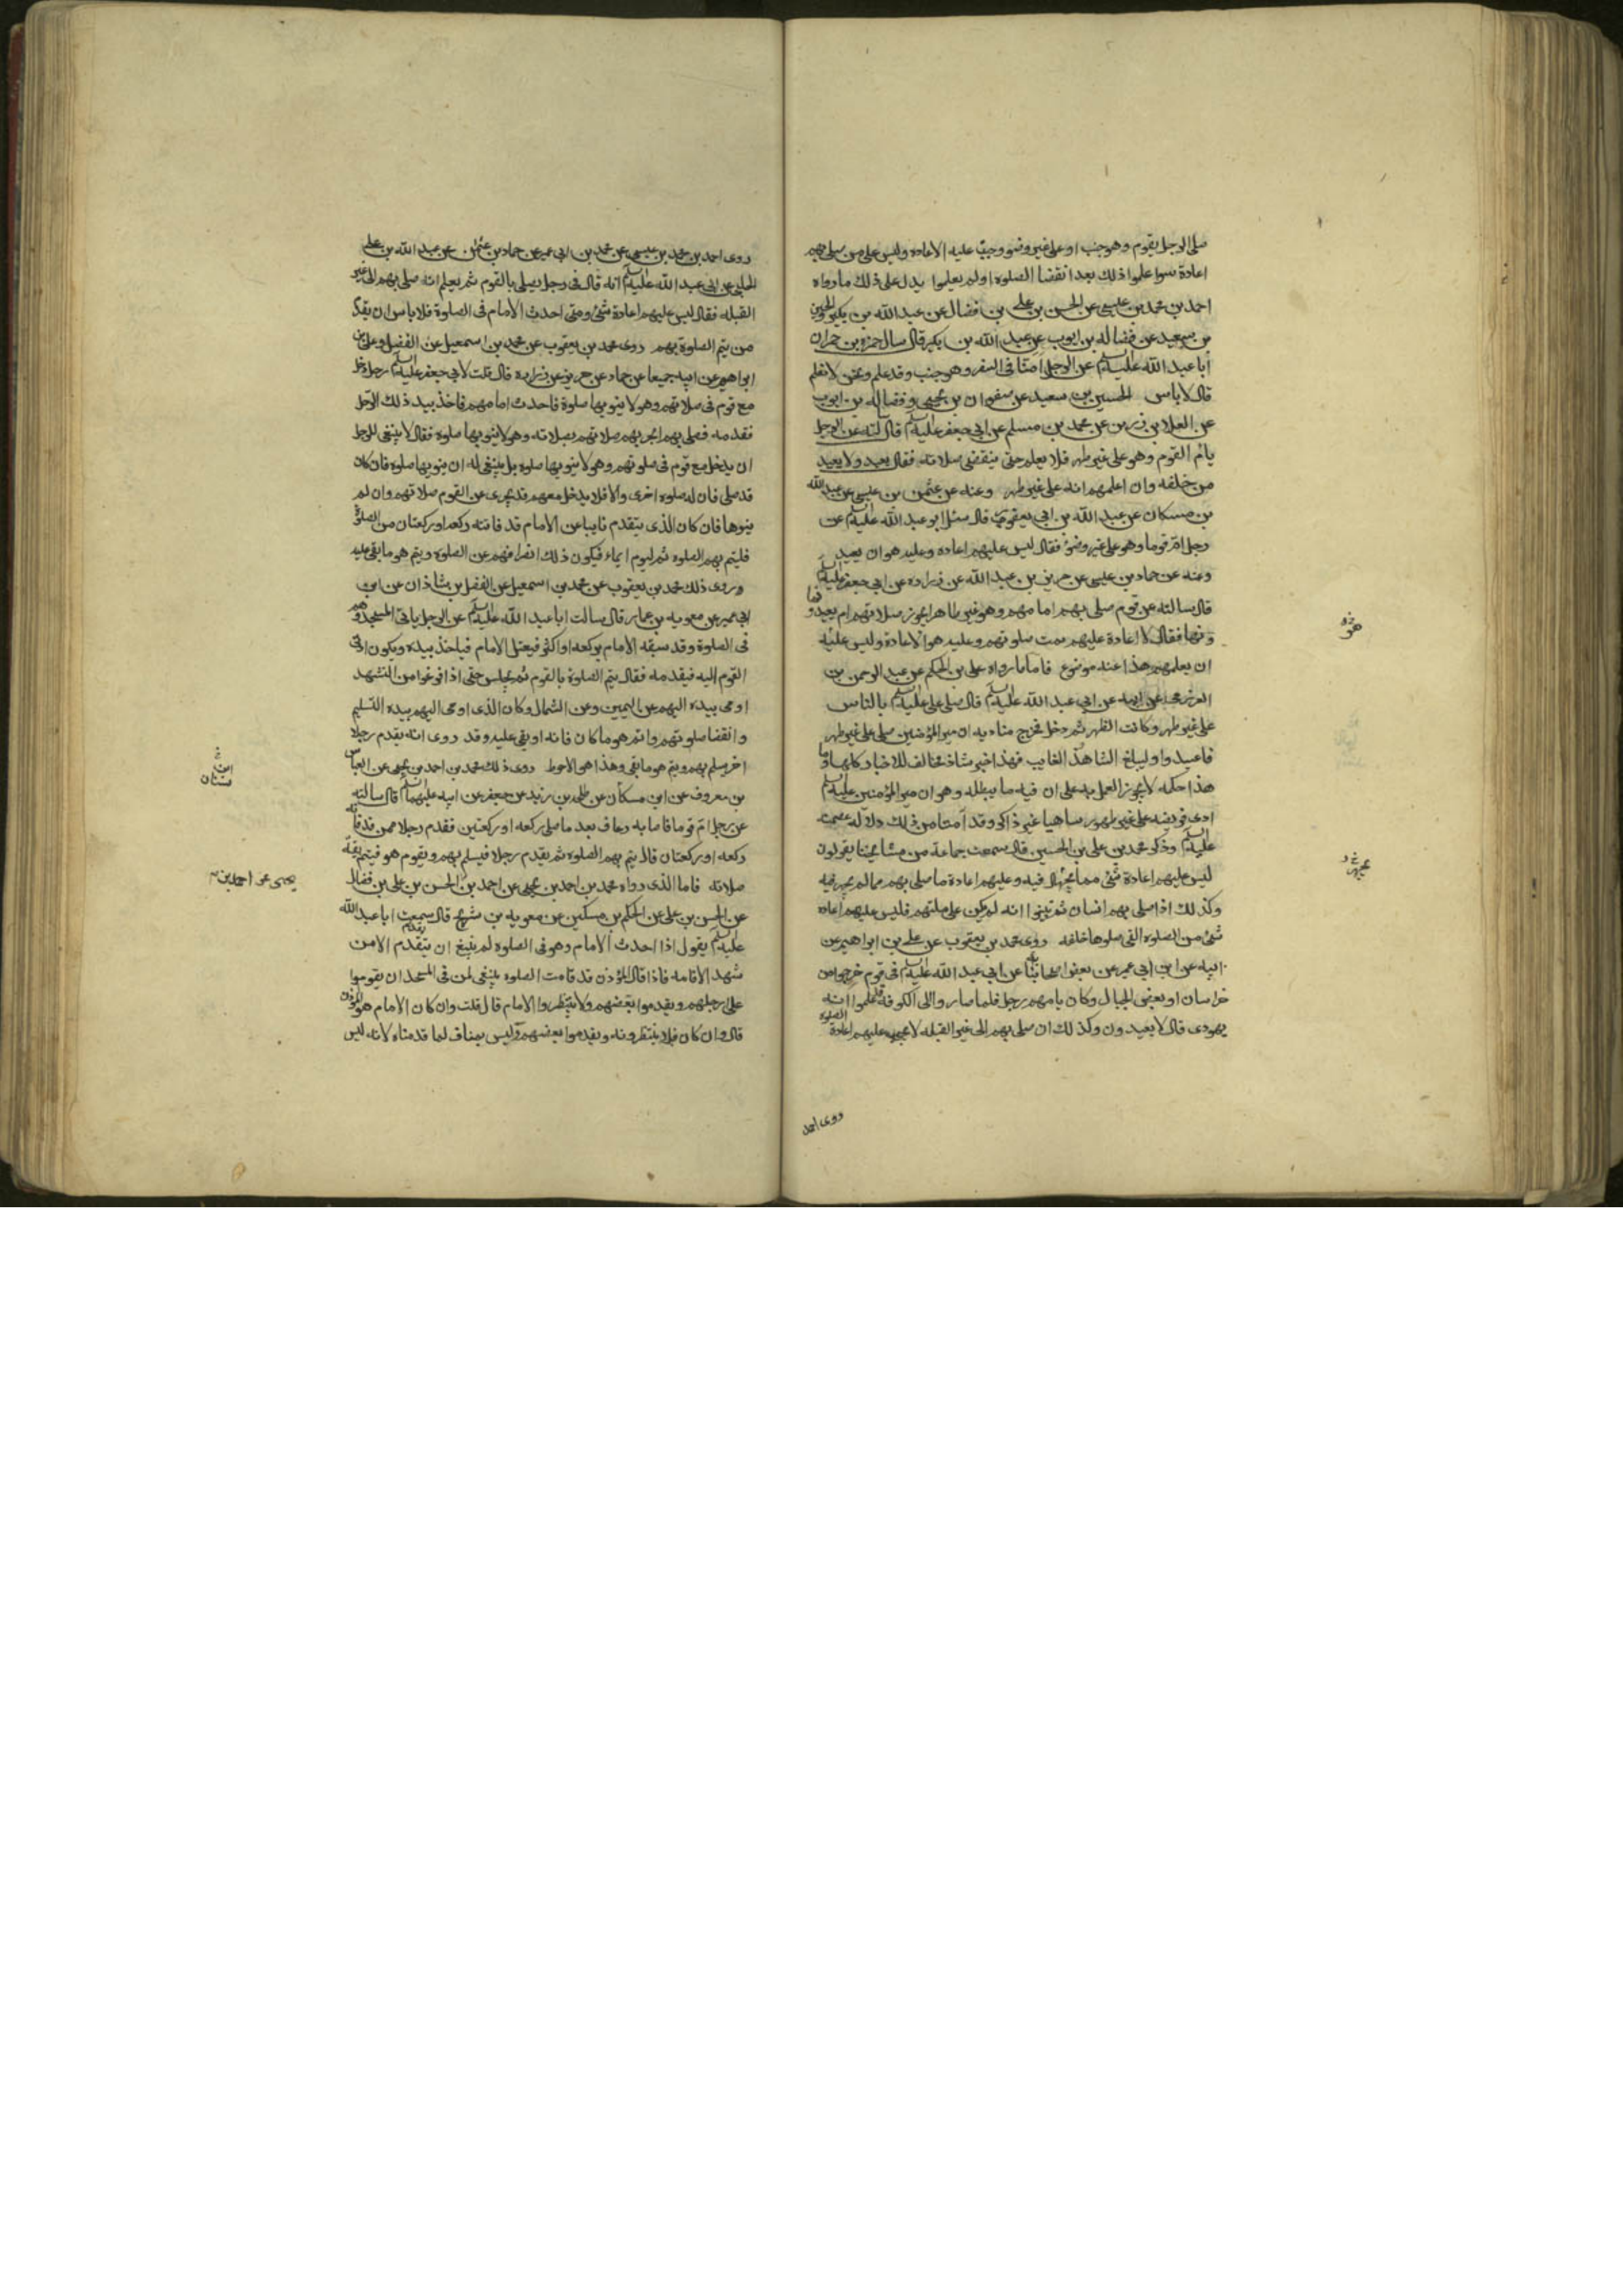 صلى الرجل بقوم وهو جنب او على غير وضوء وجب عليه الاعاده وليس على من صلى بهم
اعادة سوا علموا ذلك بعد انقضا الصلوه او لم يعلموا يدل على ذلك ما رواه
احمد بن محمد بن عيسى عن الحسن بن علي بن فضال عن عبد الله بن بكير الحسين
بن سعيد عن فضاله بن ايوب عن عبد الله بن بكير قال سال حمزه بن حمران
ابا عبد الله عليه السلام عن الرجل امنا فى السفر وهو جنب وقد علم ونحن لا نعلم
قال لا باس الحسين بن سعيد عن صفوان بن يحيى وفضاله بن ايوب
عن العلا بن رزين عن محمد بن مسلم عن ابى جعفر عليه السلام قال سالته عن الرجل
يام القوم وهو على غير طهر فلا يعلم حتى ينقضى صلاته فقال يعيد ولا يعيد
من خلفه وان اعلمهم انه على غير طهر وعنه عن عثمن بن عيسى عن عبد الله
بن مسكان عن عبد الله بن ابى يعفور قال سئل ابو عبد الله عليه السلام عن
رجل ام قوما وهو على غير وضوء فقال ليس عليهم اعاده وعليه هو ان يعيد
وعنه عن حماد بن عيسى عن حريز بن عبد الله عن زراره عن ابى جعفر عليه السلام
قال سالته عن قوم صلى بهم امامهم وهو غير طاهر ايجوز صلاتهم ام يعيدو
ونها فقال لا اعادة عليهم تمت صلوتهم وعليه هو الاعادة وليس عليه
ان يعلمهم هذا عنه موضوع فاما ما رواه على بن الحكم عن عبد الرحمن بن
العرزمى عن ابيه عن ابى عبد الله عليه السلام قال صلى على عليه السلام بالناس
على غير طهر وكانت الظهر ثم دخل فخرج مناديه ان امير المؤمنين صلى على غير طهر
فاعيدوا وليبلغ الشاهد الغايب فهذا خبر شاذ مخالف للاخبار كلها وما
هذا حكمه لا يجوز العمل به على ان فيه ما يبطله وهو ان امير المؤمنين عليه السلام
ادى فريضه على غير طهور ساهيا غير ذاكر وقد امنا من ذلك دلالة عصمته
عليه السلام وذكر محمد بن على بن الحسين قال سمعت جماعة من مشايخنا يقولون
ليس عليهم اعادة شئ مما يجهر فيه وعليهم اعادة ما صلى بهم مما لم يجهر فيه
وكذلك اذا صلى بهم انسان ثم تبينوا انه لم يكن على ملتهم فليس عليهم اعاده
شئ من الصلوه التى صلوها خلفه روى محمد بن يعقوب عن على بن ابراهيم عن
ابيه عن ابن ابى عمير عن بعض اصحابنا عن ابى عبد الله عليه السلام فى قوم خرجوا من
خراسان او بعض الجبال وكان يامهم رجل فلما صاروا الى الكوفه علموا انه
يهودى قال لا يعيدون وكذلك ان صلى بهم الى غير القبله لا يجب عليهم اعادة الصلوه
روى احمد
روى احمد بن محمد بن عيسى عن محمد بن ابى عمير عن حماد بن عثمان عن عبد الله بن على
الحلبى عن ابى عبد الله عليه السلام انه قال فى رجل يصلى بالقوم ثم يعلم انه صلى بهم الى غير
القبله فقال ليس عليهم اعادة شئ ومتى احدث الامام فى الصلوة فلا باس ان يقدم
من يتم الصلوة بهم روى محمد بن يعقوب عن محمد بن اسمعيل عن الفضل وعلى بن
ابراهيم عن ابيه جميعا عن حماد عن حريز عن زراره قال قلت لابى جعفر عليه السلام رجل دخل
مع قوم فى صلاتهم وهو لا ينويها صلوة فاحدث امامهم فاخذ بيد ذلك الرجل
فقدمه فصلى بهم ايجزيهم صلاتهم بصلاته وهو لا ينويها صلوه فقال لا ينبغى للرجل
ان يدخل مع قوم فى صلوتهم وهو لا ينويها صلوه بل ينبغى له ان ينويها صلوه فان كان
قد صلى فان له صلوه اخرى والا فلا يدخل معهم قد يجزى عن القوم صلاتهم وان لم
ينوها فان كان الذى يتقدم نايبا عن الامام قد فاتته ركعه او ركعتان من الصلوة
فليتم بهم الصلوه ثم ليوم ايماء فيكون ذلك انصرافهم عن الصلوه ويتم هو ما بقى عليه
وروى ذلك محمد بن يعقوب عن محمد بن اسمعيل عن الفضل بن شاذان عن ابن
ابى عمير عن معويه بن عمار قال سالت ابا عبد الله عليه السلام عن الرجل ياتى المسجد وهم
فى الصلوة وقد سبقه الامام بركعه او اكثر فيعتل الامام فياخذ بيده ويكون ادنى
القوم اليه فيقدمه فقال يتم الصلوة بالقوم ثم يجلس حتى اذا فرغوا من التشهد
اومى بيده اليهم عن اليمين وعن الشمال وكان الذى اومى اليهم بيده التسليم
وانقضا صلوتهم واتم هو ما كان فاته او بقى عليه وقد روى انه يقدم رجلا
اخر يسلم بهم ويتم هو ما بقى وهذا هو الاحوط روى ذلك محمد بن احمد بن يحيى عن العباس
بن معروف عن ابن مسكان عن طلحه بن زيد عن جعفر عن ابيه عليهما السلام قال سالته
عن رجل ام قوما فاصابه رعاف بعد ما صلى ركعه او ركعتين فقدم رجلا ممن قد فاته
ركعه او ركعتان قال يتم بهم الصلوه ثم يقدم رجلا فيسلم بهم ويقوم هو فيتم بقية
صلاته فاما الذى رواه محمد بن احمد بن يحيى عن احمد بن الحسن بن على بن فضال
عن الحسن بن على عن الحكم بن مسكين عن معويه بن شريح قال سمعت ابا عبد الله
عليه السلام يقول اذا احدث الامام وهو فى الصلوه لم ينبغ ان يتقدم الا من
شهد الاقامه فاذا قال المؤذن قد قامت الصلوه ينبغى لمن فى المسجد ان يقوموا
على ارجلهم ويقدموا بعضهم ولا ينتظروا الامام قال قلت وان كان الامام هو المؤذن
قال وان كان فلا ينتظرونه ويقدموا بعضهم وليس بمناف لما قدمناه لانه ليس
ابن
سنان
يحيى عن احمد بن